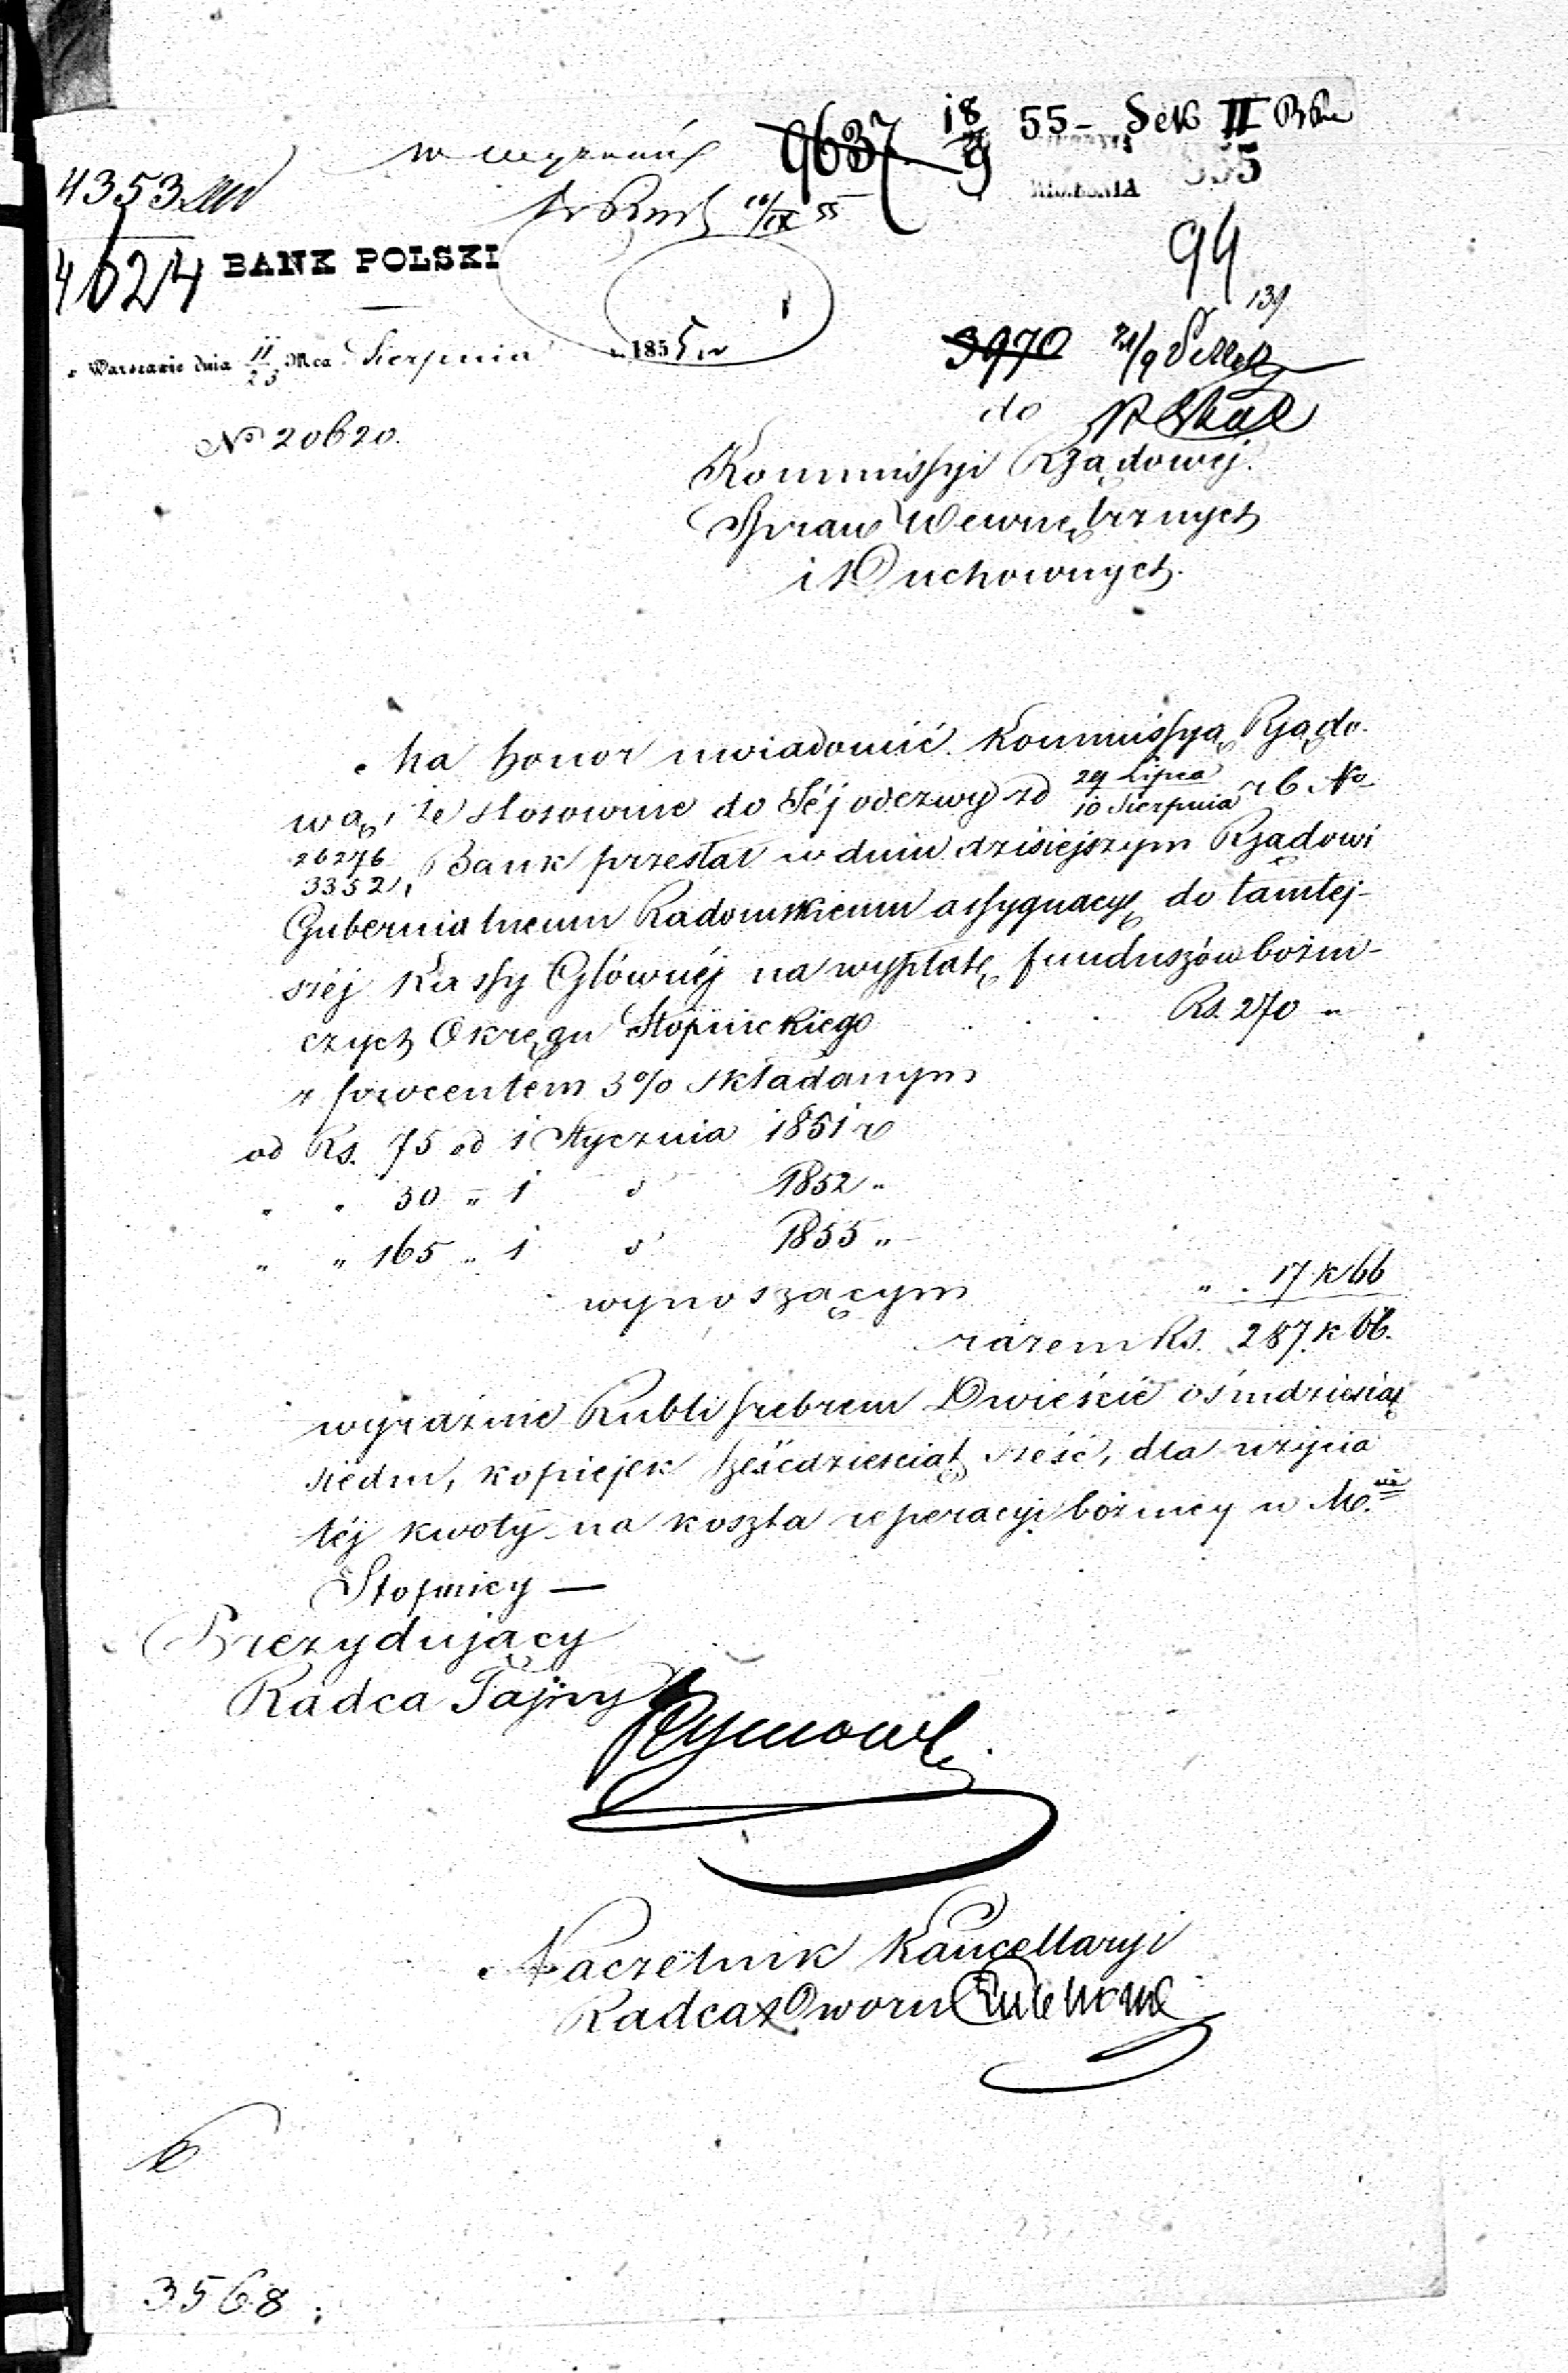 9637 18/9 55 - Sek II
4353
4624
BANK POLSKI
94
139
w Warszawie dnia 11/23 Mca Sierpnia 1855 r
3970 21/9
do
No 20620.
Kommissyi Rządowej
Spraw Wewnętrznych
i Duchownych.
Ma honor uwiadomić Kommissyą Rządo-
wą, że stosownie do Jéj odezwy zd 29 Lipca/10 Sierpnia r b No
26276/3352, Bank przesłał w dniu dzisiejszym Rządowi
Gubernialnemu Radomskiemu assygnacyę do tamtej-
széj Kassy Głównéj na wypłatę funduszów bożni-
czych Okręgu Stopnickiego . . . Rs. 270 „
z procentem 3% składanym
od Rs. 75 od 1 Stycznia 1851 r
„ „ 30 „ 1 „ 1852 „
„ „ 165 „ 1 „ 1855 „
wynoszącym „ . 17 k 66
razem Rs. 287 k 66.
wyraźnie Rubli srebrem Dwieście ośmdziesiąt
siedm, kopiejek sześćdziesiąt sześć, dla użycia
téj kwoty na koszta reperacyi bożnicy w M.
Stopnicy —
Prezydujący
Radca Tajny
Naczelnik Kancellaryi
Radca Dworu
3568